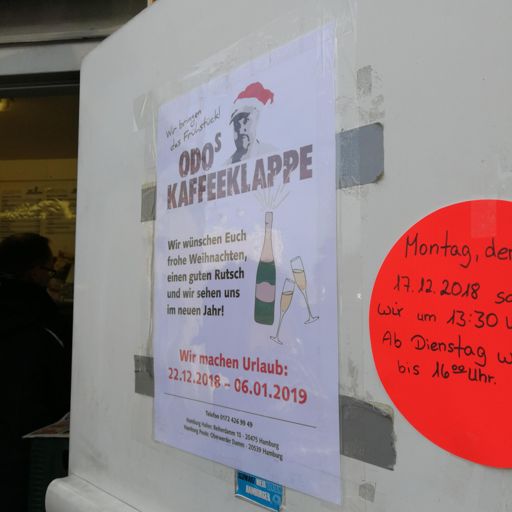 Wir bringen
das Frühstück!
ODOs
KAFFEEKLAPPE
Wir wünschen Euch
frohe Weihnachten,
einen guten Rutsch
und wir sehen uns
im neuen Jahr!
Wir machen Urlaub:
22.12.2018 – 06.01.2019
Telefon 0172 426 99 49
Hamburg Hafen: Reiherdamm 10 - 20475 Hamburg
Hamburg Peute: Oberwerder Damm - 20539 Hamburg
Montag, de
17.12.2018
wir um 13:30
Ab Dienstag
bis 16 00 Uhr.